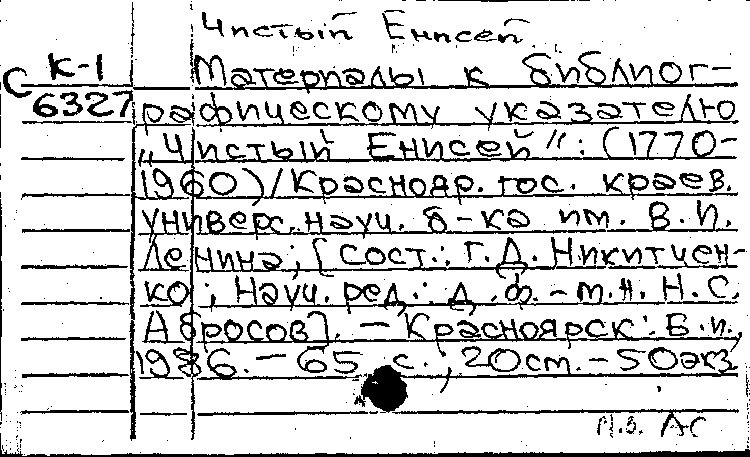 Чистый Енисей
С К-1 Материалы к библиог-
6327 рафическому указателю
„Чистый Енисей": (1770-
1960)/Краснояр. гос. краев.
универс. науч. б-ка им. В.И.
Ленина; [сост.: Г.Д. Никитчен-
ко; Науч. ред.: д.ф.-м.н. Н.С.
Абросов]. – Красноярск: Б.и.,
1986. – 65 с.; 20см. – 50экз
АС